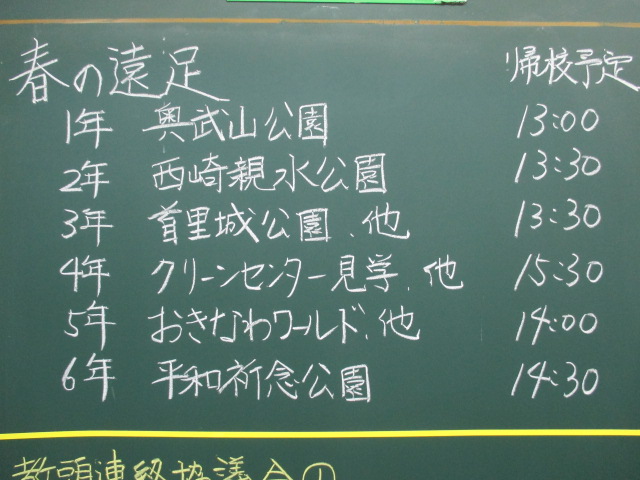 春の遠足 帰校予定
1年 奥武山公園 13:00
2年 西崎親水公園 13:30
3年 首里城公園、他 13:30
4年 クリーンセンター見学、他 15:30
5年 おきなわワールド、他 14:00
6年 平和祈念公園 14:30
教頭連絡協議会①